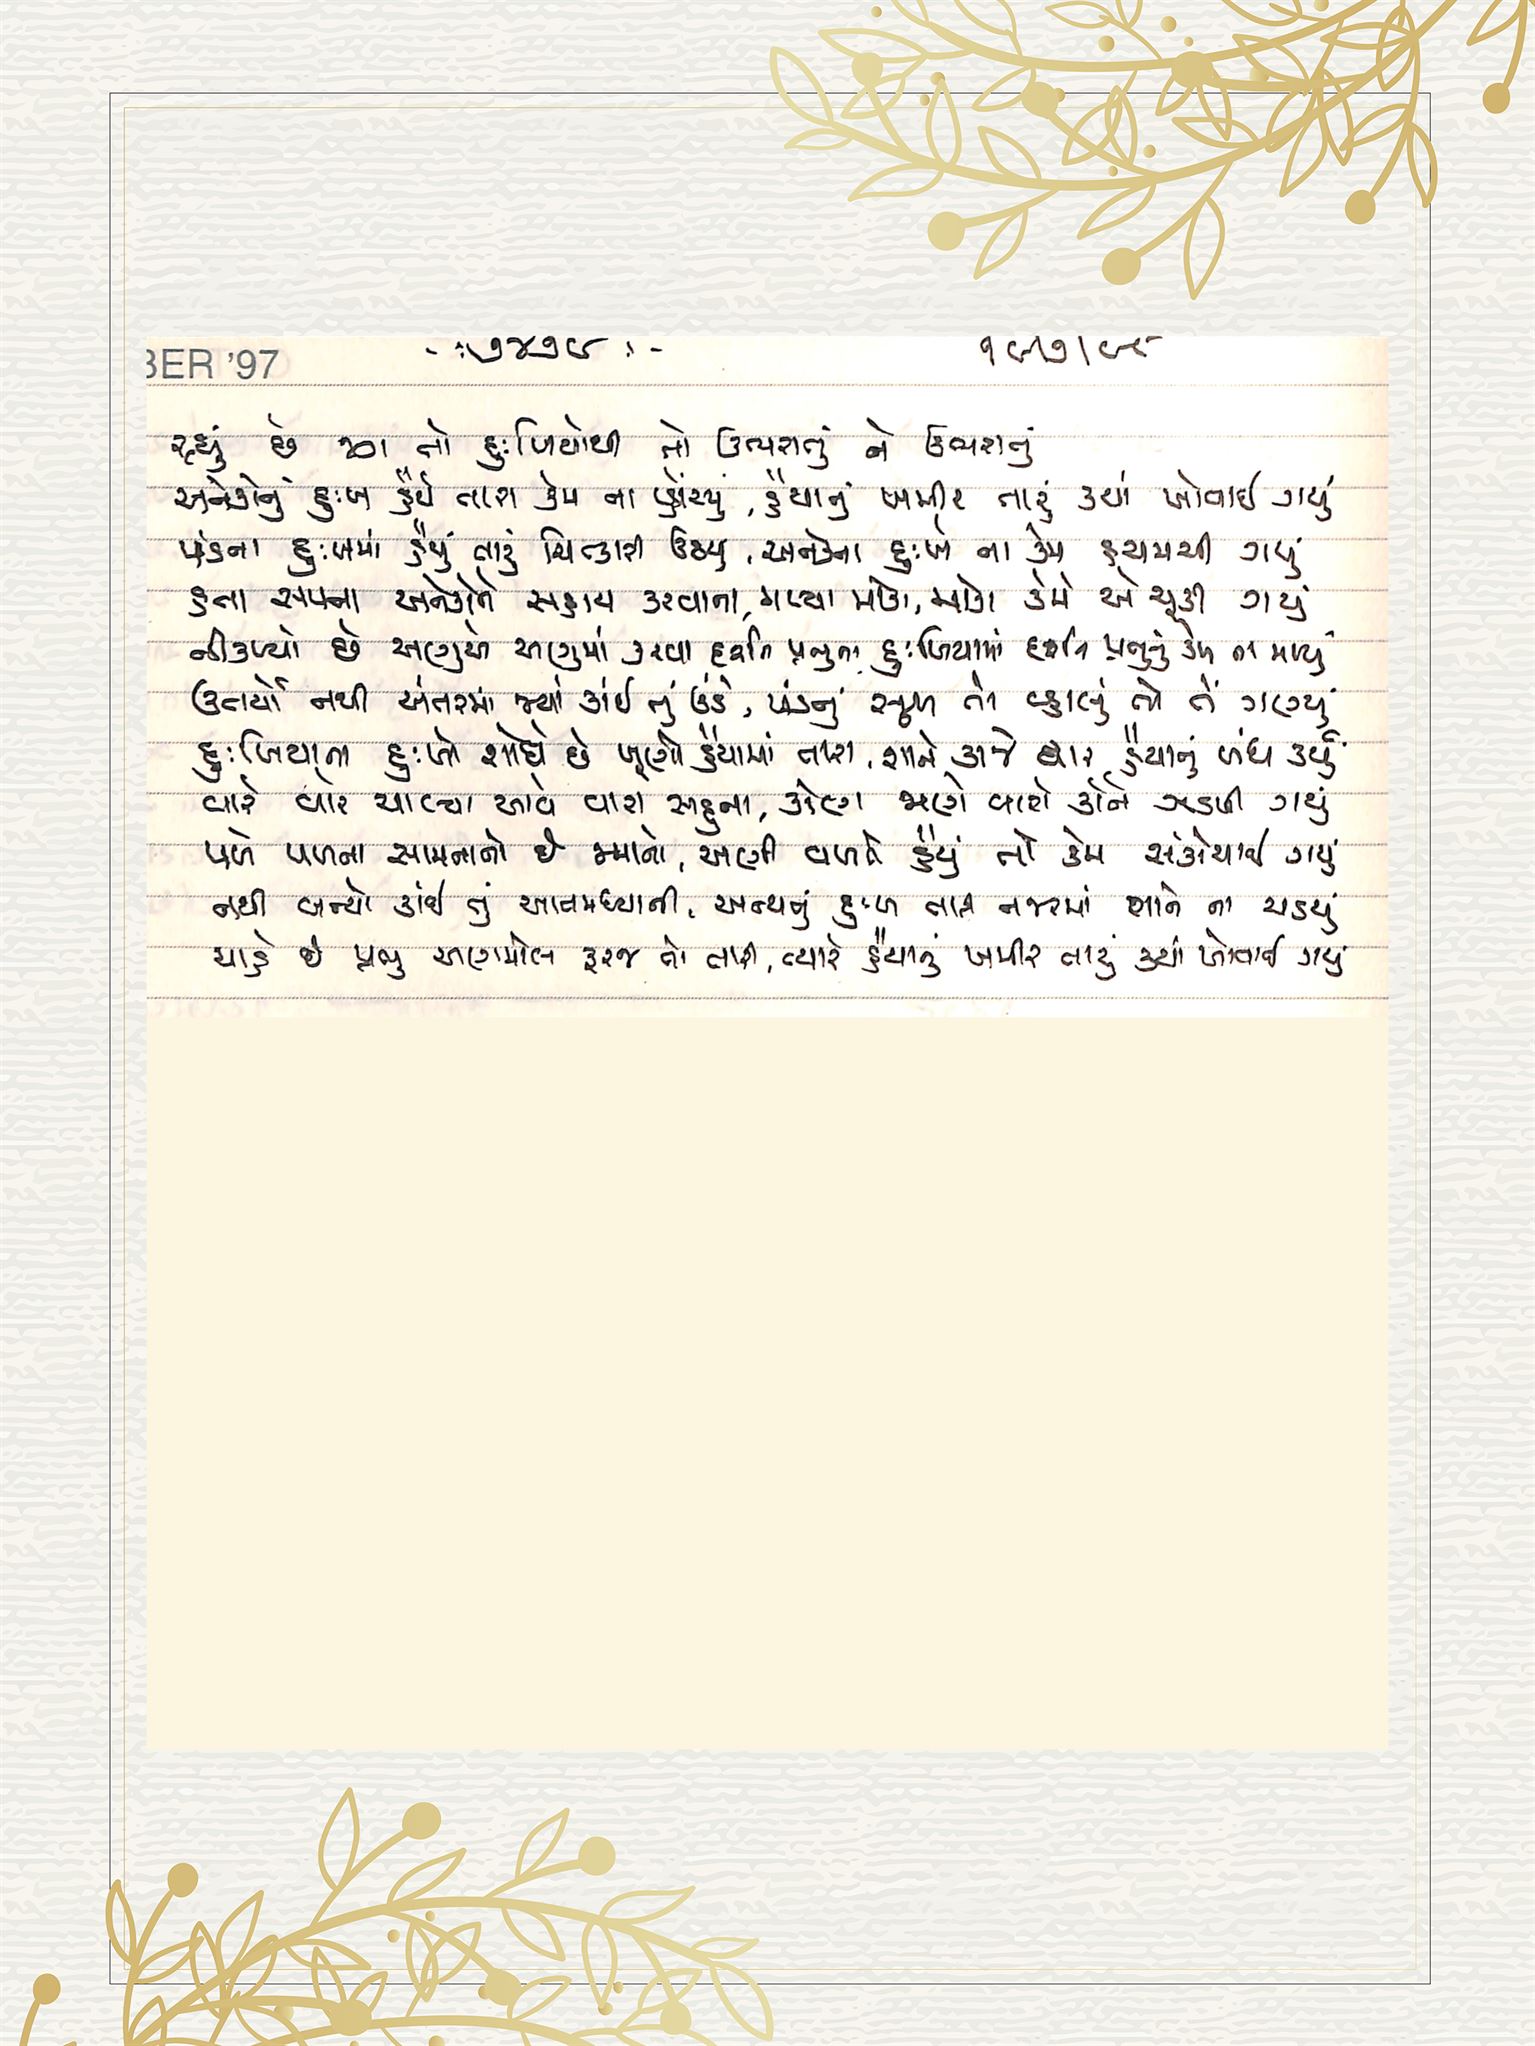 BER '97 -: ૭૪૭૯ :- ૧૯/૭/૯૮
રહ્યું છે જગ તો દુઃખિયોથી તો ઉભરાતું ને ઉભરાતું
અનેકોનું દુઃખ હૈયે તારા કેમ ના સ્પર્શ્યું, હૈયાનું ખમીર તારું ક્યાં ખોવાઈ ગયું
પંડના દુઃખમાં હૈયું તારું ચિત્કારી ઉઠયું, અનેકના દુઃખે ના કેમ હચમચી ગયું
હતા સપના અનેકોને સહાય કરવાના, મળ્યા મોકા, મોકા કેમ એ ચૂકી ગયું
નીકળ્યો છે અણુએ અણુમાં કરવા દર્શન પ્રભુના દુઃખિયામાં દર્શન પ્રભુનું કેમ ના મળ્યું
ઉતર્યો નથી અંતરમાં જ્યાં કાંઈ તું ઉંડે, પંડનું સુખ તેં વ્હાલું તો તેં ગણ્યું
દુઃખિયાના દુઃખો શોધે છે ખૂણો હૈયામાં તારા, શાને કાજે દ્વાર હૈયાનું બંધ કર્યું
વારે વારે ચાલ્યા આવે વારા સહુના, કોણ જાણે વારો કોને ઝડપી ગયું
પળે પળના સામનાનો છે જમાનો, અણી વખતે હૈયું તો કેમ સંકોચાઈ ગયું
નથી બન્યો કાંઈ તું આતમધ્યાની, અન્યનું દુઃખ તારી નજરમાં શાને ના ચડયું
ચાહે છે પ્રભુ અણમોલ ફરજ તો તારી, ત્યારે હૈયાનું ખમીર તારું ક્યાં ખોવાઈ ગયું